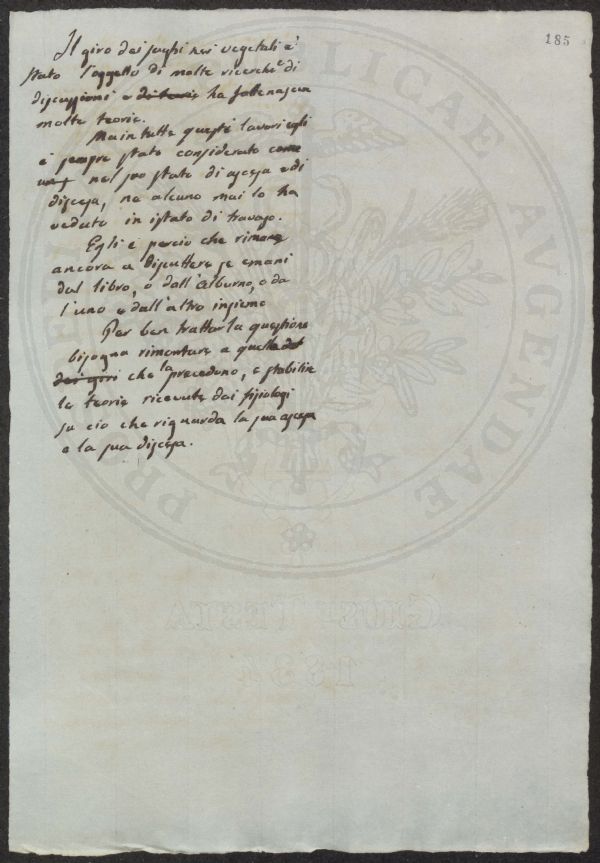 185
Il giro dei sughi nei vegetali è
stato l'oggetto di molte ricerche e di
discussioni e ha fatto nascer
molte teorie.
Ma in tutte questi lavori egli
è sempre stato considerato come
nel suo stato di ascesa e di
discesa, ne alcuno mai lo ha
veduto in istato di travaso.
Egli è perciò che rimane
ancora a discuttere se emani
dal libro, o dall'alburno, o da
l'uno e dall'altro insieme
Per ben trattar la questione
bisogna rimontare a quelle
che la precedono, e stabilire
le teorie ricevute dai fisiologi
su ciò che riguarda la sua ascesa
e la sua discesa.